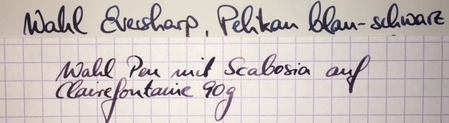 Wahl Eversharp, Pelikan blau-schwarz
Wahl Pen mit Scabosia auf
Clairefontaine 90g